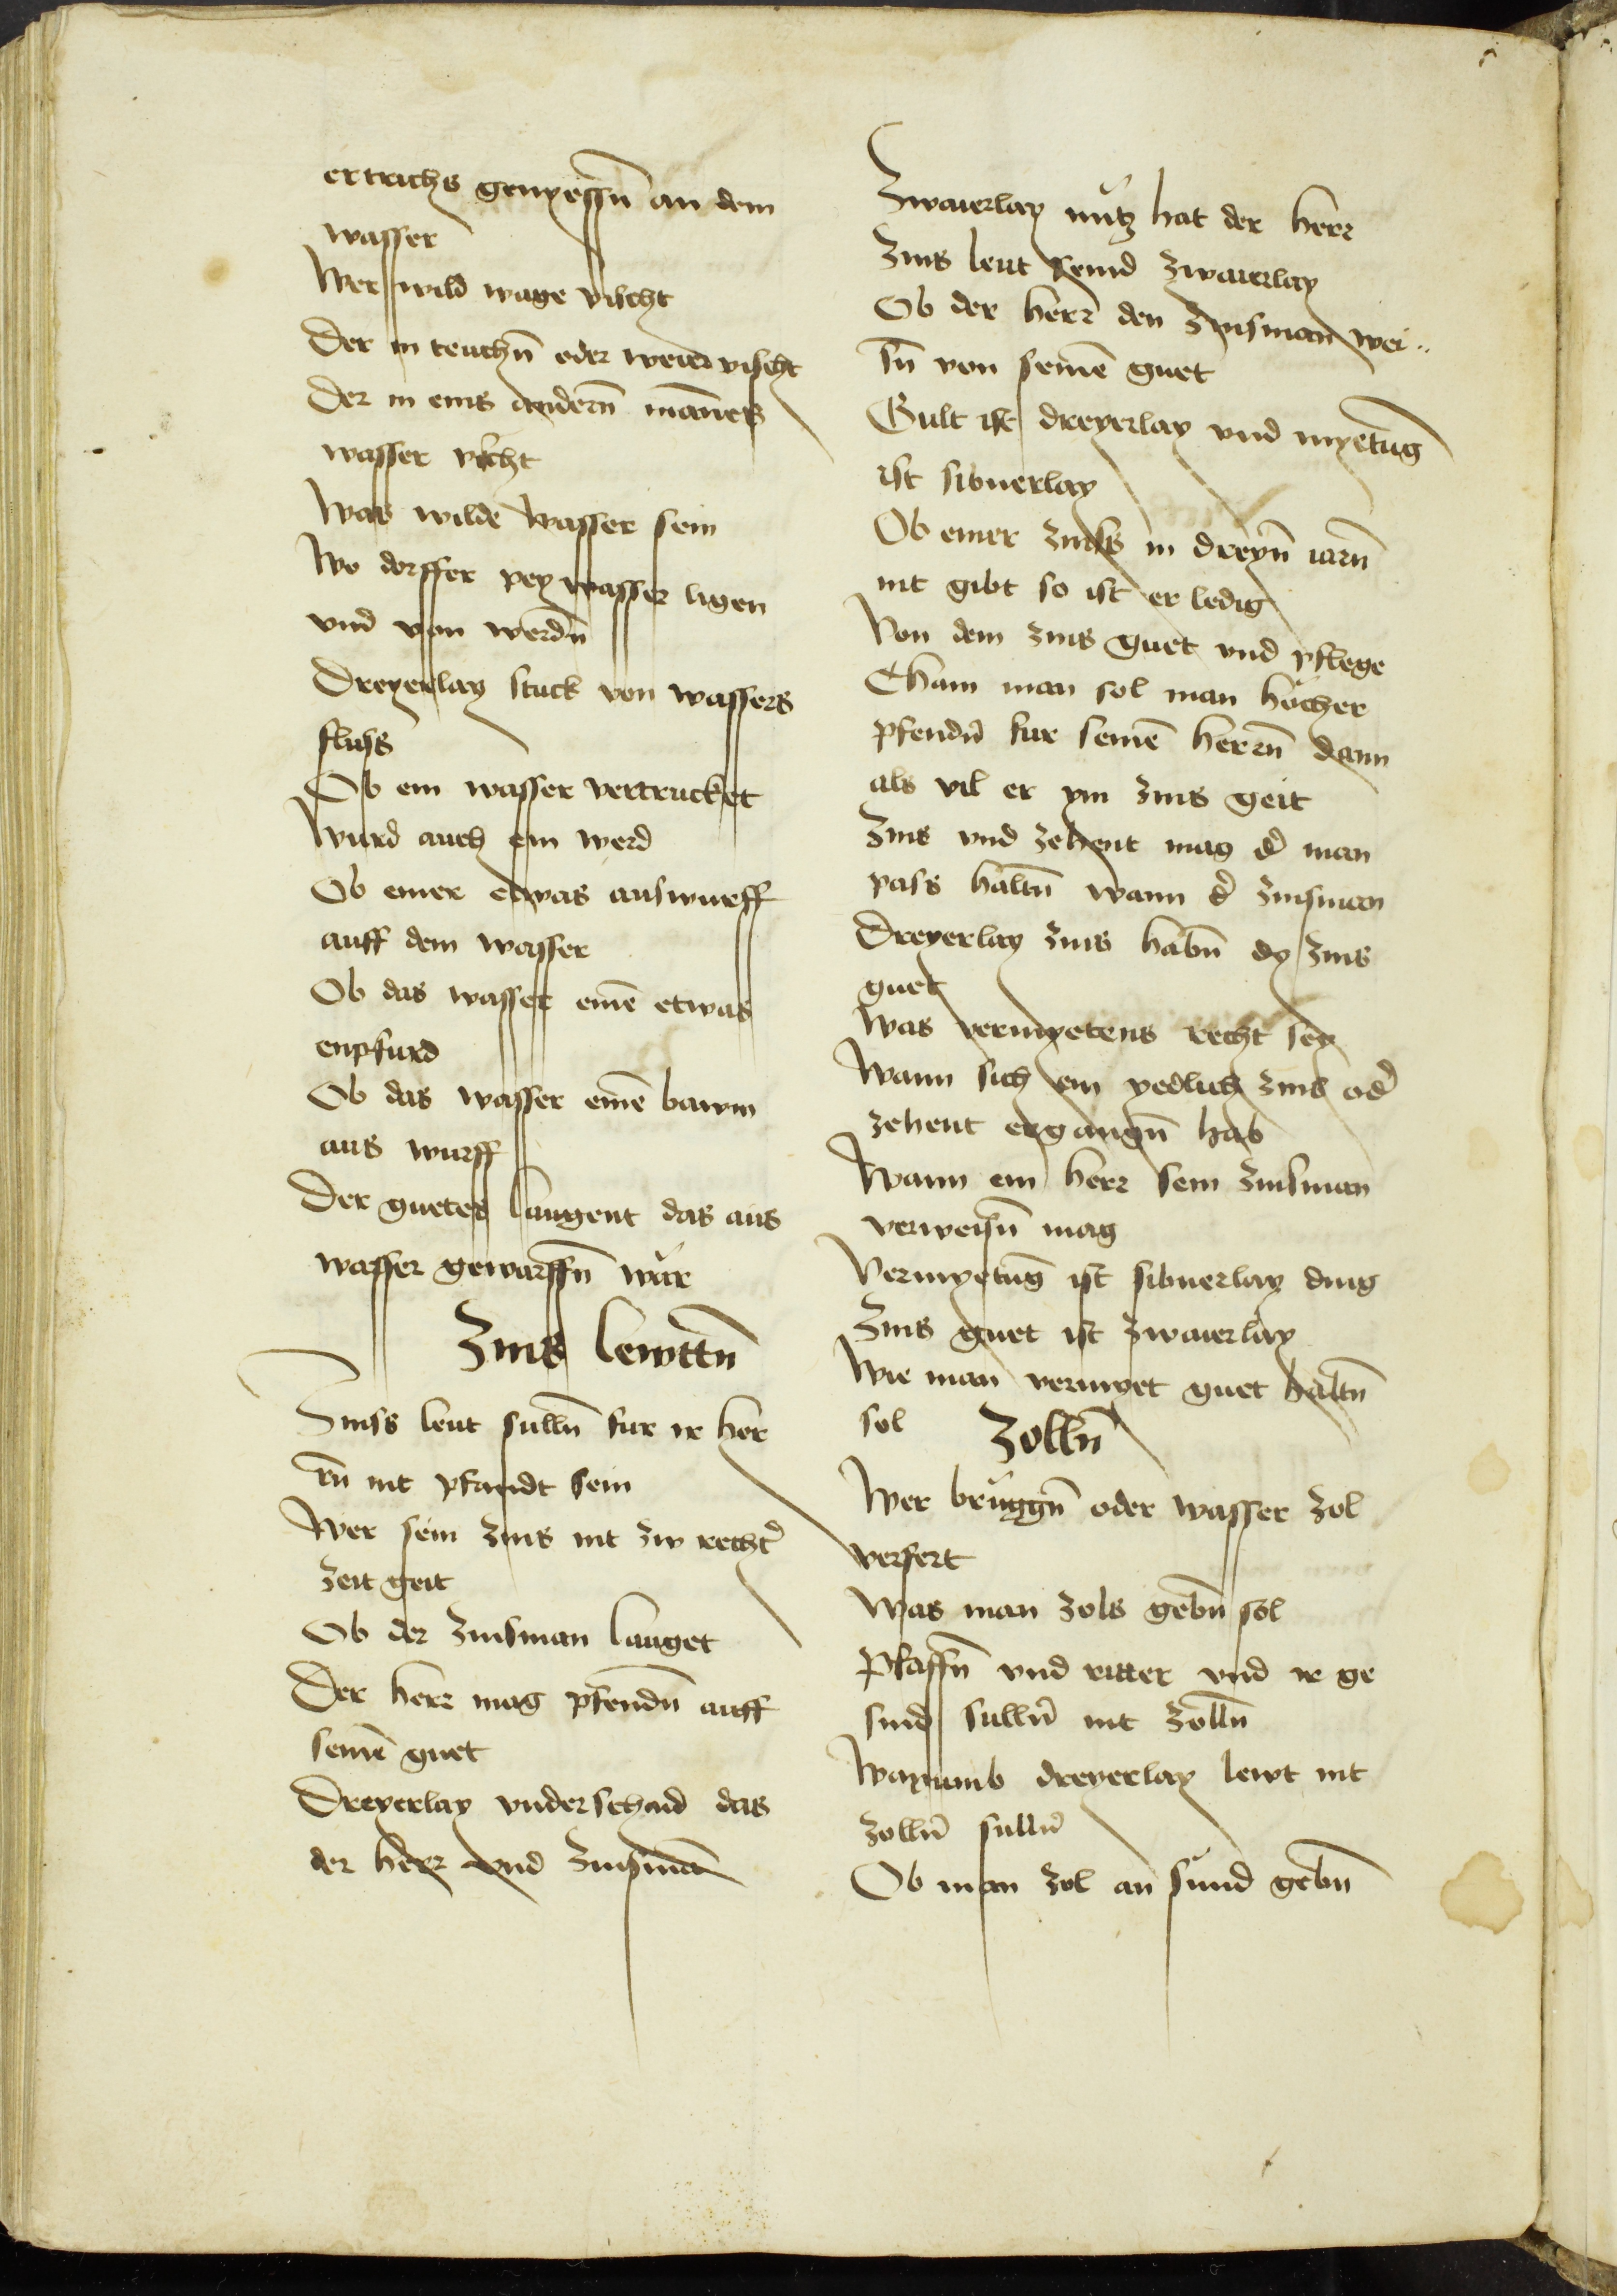 ertrichs genyessn̄ an dem
wasser
Wer wild wage vischt
Der in teuchn̄ oder weier vischt
Der in eins andern̄ mānes
wasser vischt
Was wilde wasser sein
Wo dorffer pey wasser ligen
vnd von werdn̄
Dreyerlay stuck von wassers
fluss
Ob ein wasser vertrucket
wurd auch ein werd
Ob einer etwas auswurff
auff dem wasser
Ob das wasser einē etwas
enpfurd
Ob das wasser einē bawm
aus wurff
Der guetes laugent das aus
wasser gewarffn̄ wär
Zins lewttn̄
Zinss leut sulln̄ fur ir her
rn̄ nit pfandt sein
Wer sein zins nit zw recht᷑
zeit geit
Ob der zinsman lauget
Der herr mag pfendn̄ auff
seinē guet
Dreyerlay vnderschaid das
der herr vnd zinsman
Zwaierlay nücz hat der herr
Zins leut seind zwaierlay
Ob der herr den zinsman wei
sn̄ von seinē guet
Gult ist dreyerlay vnd myetūg
ist sibnerlay
Ob einer zinss in dreyn̄ iarn̄
nit gibt so ist er ledig
Von dem zins guet vnd pflege
Cham man sol man höcher
pfendn̄ fur seinē herrn̄ dann
als vil er ym zins geit
Zins vnd zehent mag d᷑ man
pass haltn̄ wann d᷑ zinsman
Dreyerlay zins habn̄ dy zins
guet
Was vermyetens recht sey
Wann sich ein yedlich zins od᷑
zehent ergangn̄ hab
Wann ein herr sein zinsman
verweisn̄ mag
Vermyetūg ist sibnerlay ding
Zins guet ist zwaierlay
Wie man vermyet guet haltn̄
sol
Zolln̄
Wer brüggn̄ oder wasser zol
verfert
Was man zols gebn̄ sol
Pfaffn̄ vnd ritter vnd ir ge
sind sulln̄ nit zolln̄
Warumb dreyerlay lewt nit
zolln̄ sulln̄
Ob man zol an sünd gebn̄